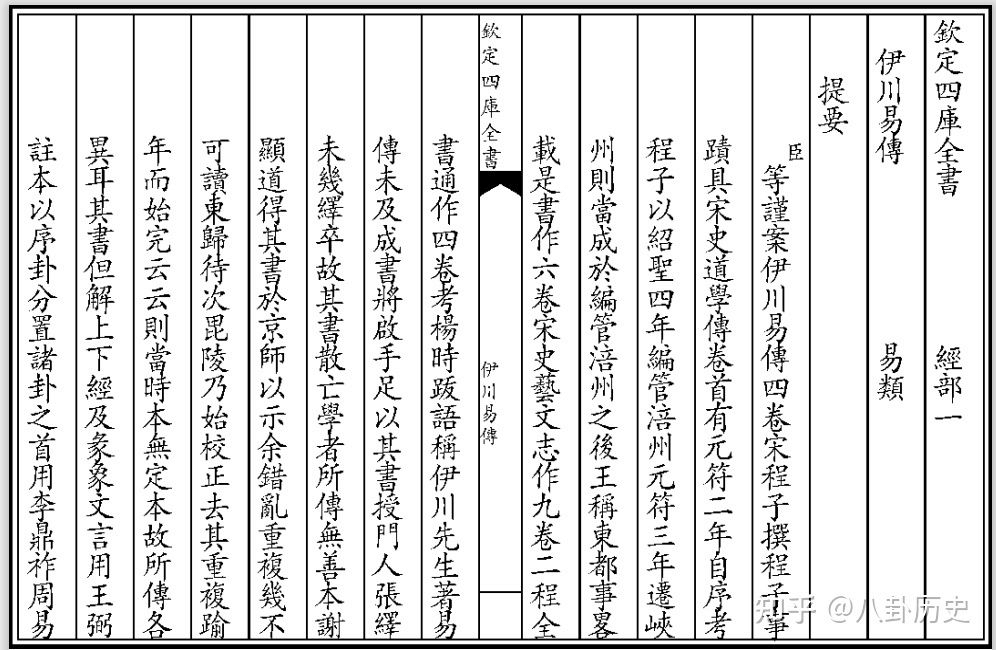 欽定四庫全書 經部一
伊川易傳 易類
提要
臣等謹案伊川易傳四卷宋程子撰程子事
蹟具宋史道學傳卷首有元符二年自序考
程子以紹聖四年編管涪州元符三年遷峽
州則當成於編管涪州之後王稱東都事畧
載是書作六卷宋史藝文志作九卷二程全
欽定四庫全書 伊川易傳
書通作四卷考楊時跋語稱伊川先生著易
傳未及成書將啟手足以其書授門人張繹
未幾繹卒故其書散亡學者所傳無善本謝
顯道得其書於京師以示余錯亂重複幾不
可讀東歸待次毘陵乃始校正去其重複踰
年而始完云云則當時本無定本故所傳各
異耳其書但解上下經及彖象文言用王弼
註本以序卦分置諸卦之首用李鼎祚周易
知乎 @八卦历史